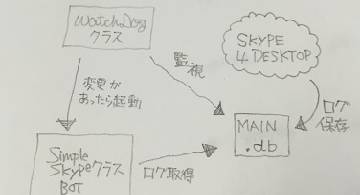 WatchDog
クラス
SKYPE
4 DESKTOP
監視
変更が
あったら起動
ログ
保存
MAIN
.db
Simple
Skypeクラス
BOT
ログ取得